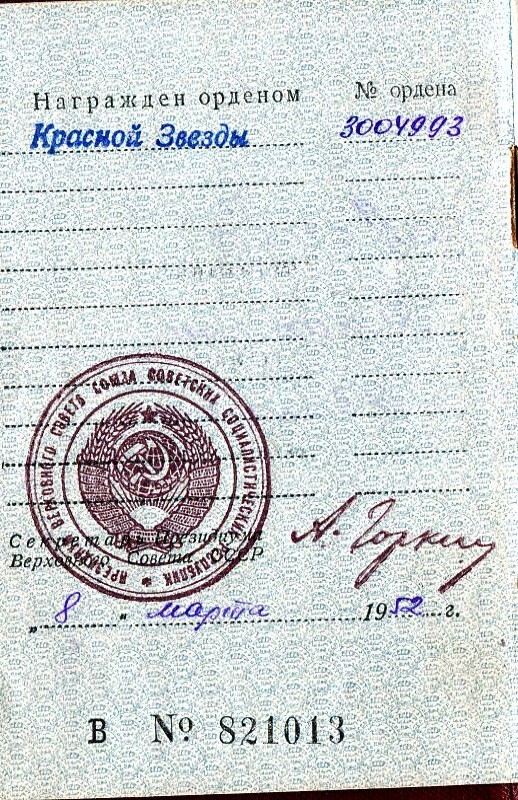 Награжден орденом № ордена
Красной Звезды 3004993
ПРЕЗИДИУМ ВЕРХОВНОГО СОВЕТА СОЮЗА СОВЕТСКИХ СОЦИАЛИСТИЧЕСКИХ РЕСПУБЛИК
Секретарь Президиума
Верховного Совета СССР
А. Горкин
„8“ марта 1952 г.
В № 821013